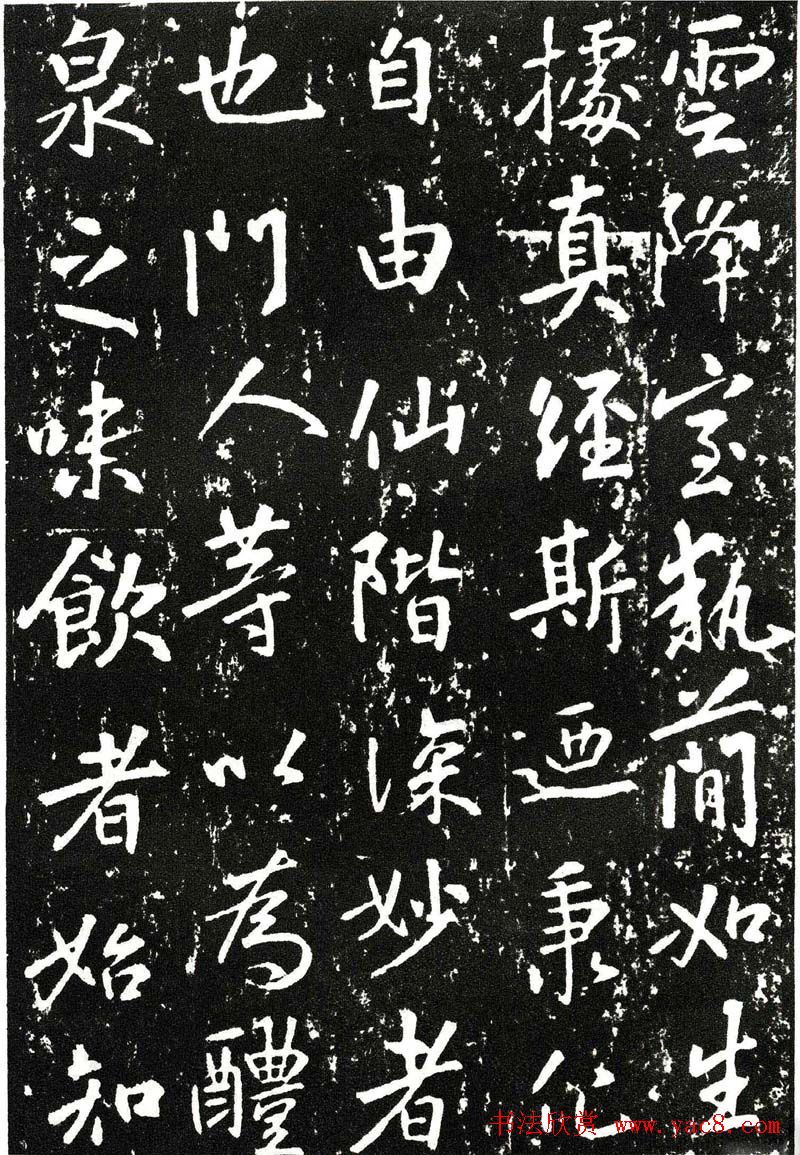 雲降室執蕳如生
據真經斯迺秉化
自由仙階深妙者
也門人等以為醴
泉之味飲者始知
书法欣赏 www.yac8.com